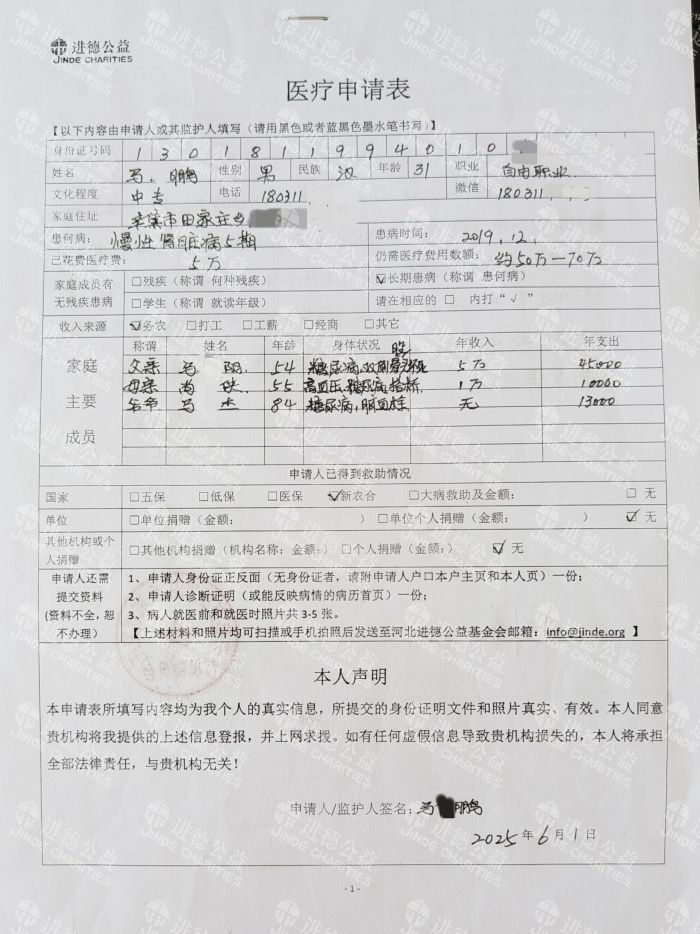 进德公益
JINDE CHARITIES
医疗申请表
【以下内容由申请人或其监护人填写（请用黑色或者蓝黑色墨水笔书写）】
身份证号码 1 3 0 1 8 1 1 9 9 4 0 1 0
姓名 马 鹏 性别 男 民族 汉 年龄 31 职业 自由职业
文化程度 中专 电话 180311 微信 180311
家庭住址 辛集市田家庄乡
患何病： 慢性肾脏病5期 患病时间： 2019.12.
已花费医疗费： 5万 仍需医疗费用数额： 约50万—70万
家庭成员有无残疾患病 □残疾（称谓 何种残疾） ☑长期患病（称谓 患何病）
□学生（称谓 就读年级） 请在相应的 □ 内打“√”
收入来源 ☑务农 □打工 □工薪 □经商 □其它
家庭主要成员 称谓 姓名 年龄 身体状况 年收入 年支出
父亲 马 阳 54 糖尿病,双侧股 5万 45000
母亲 尚 55 高血压,糖尿病 1万 10000
爷爷 马 杰 84 糖尿病,脑血栓 无 13000
申请人已得到救助情况
国家 □五保 □低保 □医保 ☑新农合 □大病救助及金额： □ 无
单位 □单位捐赠（金额： ） □单位个人捐赠（金额： ） ☑ 无
其他机构或个人捐赠 □其他机构捐赠（机构名称；金额：） □个人捐赠（金额：） ☑ 无
申请人还需提交资料（资料不全，恕不办理）
1、申请人身份证正反面（无身份证者，请附申请人户口本户主页和本人页）一份；
2、申请人诊断证明（或能反映病情的病历首页）一份；
3、病人就医前和就医时照片共 3-5 张。
【上述材料和照片均可扫描或手机拍照后发送至河北进德公益基金会邮箱：info@jinde.org 】
本人声明
本申请表所填写内容均为我个人的真实信息，所提交的身份证明文件和照片真实、有效。本人同意
贵机构将我提供的上述信息登报，并上网求援。如有任何虚假信息导致贵机构损失的，本人将承担
全部法律责任，与贵机构无关！
申请人/监护人签名：马 鹏
2025 年 6 月 1 日
- 1 -